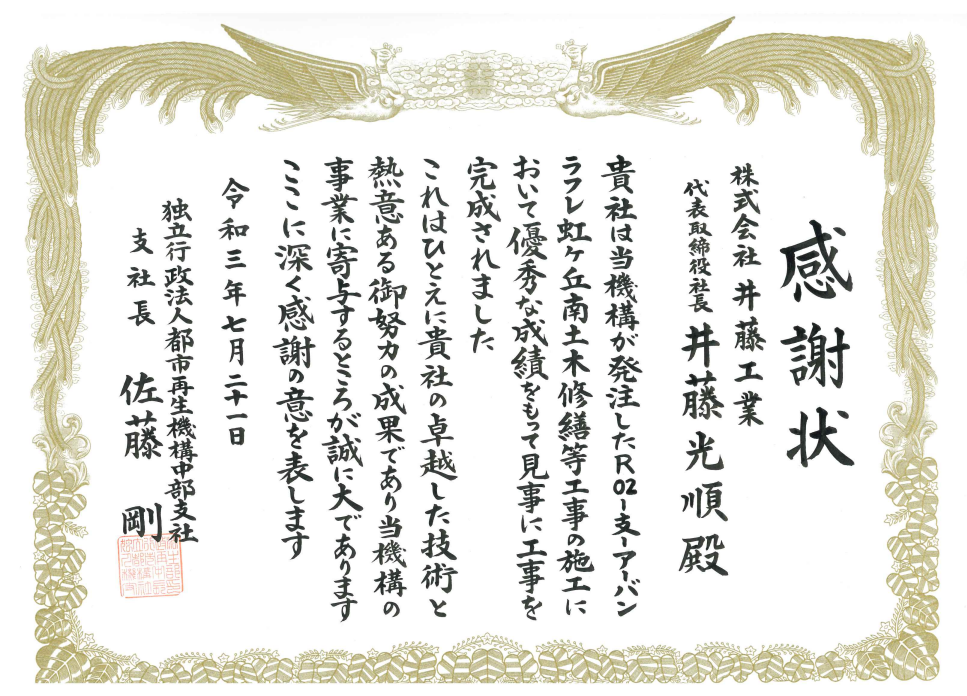 感謝状
株式会社 井藤工業
代表取締役社長 井藤光順殿
貴社は当機構が発注したR02-支-アーバン
ラフレ虹ヶ丘南土木修繕等工事の施工に
おいて優秀な成績をもって見事に工事を
完成されました
これはひとえに貴社の卓越した技術と
熱意ある御努力の成果であり当機構の
事業に寄与するところが誠に大であります
ここに深く感謝の意を表します
令和三年七月二十一日
独立行政法人都市再生機構中部支社
支社長 佐藤 剛